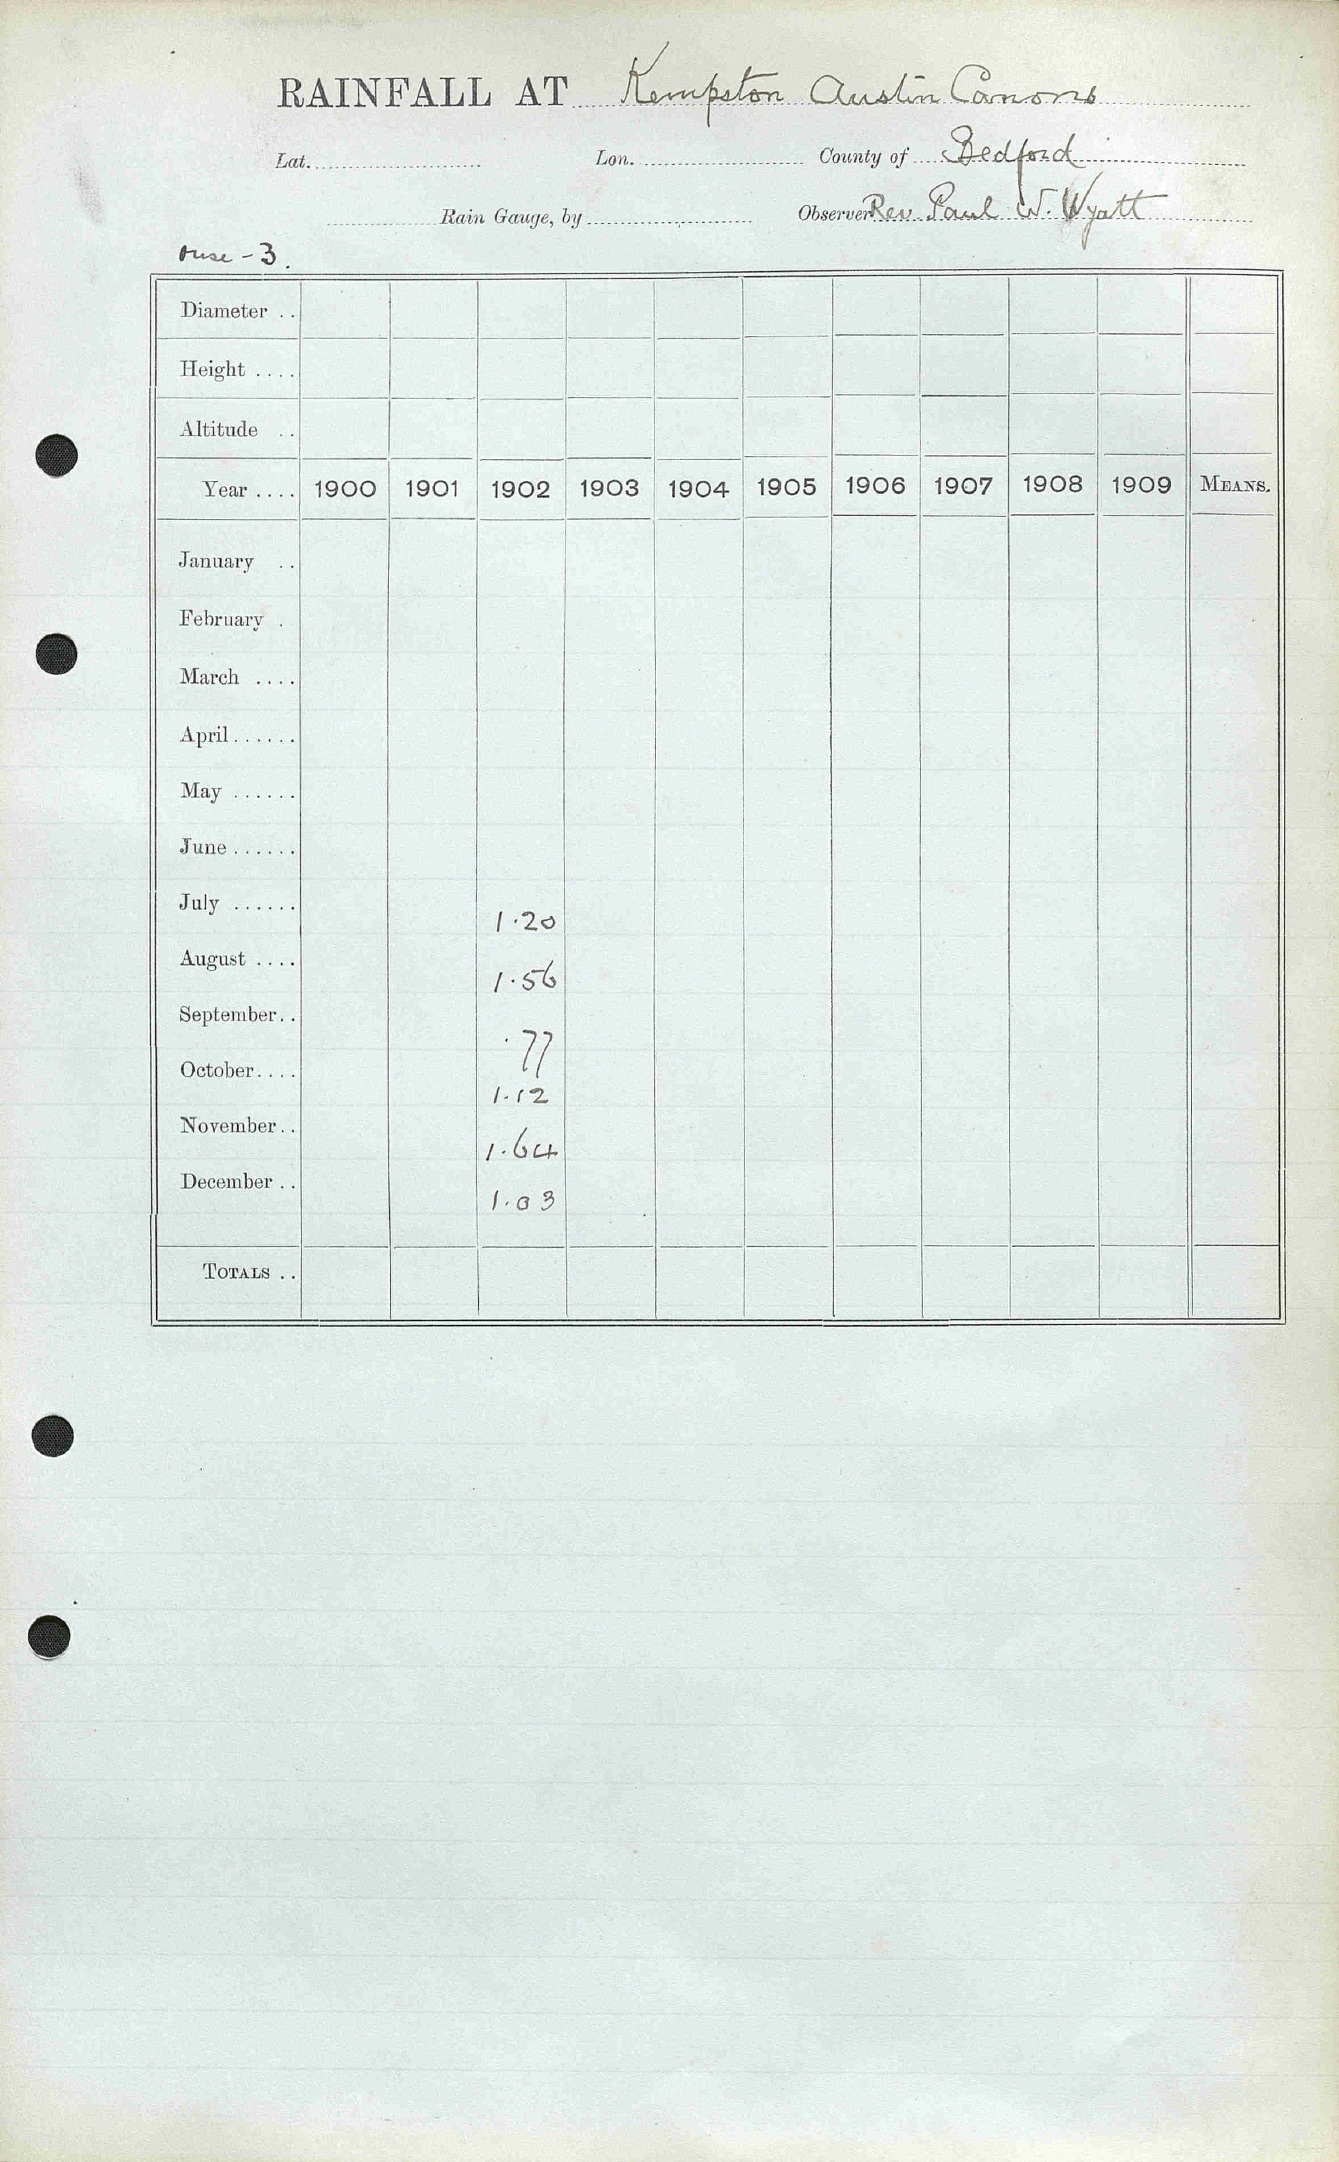 RAINFALL AT Kempston Austin Canons
Lat. Lon. County of Bedford
Rain Gauge, by Observer Rev Paul W. Wyatt
Ouse - 3.
Diameter ..
Height ....
Altitude ..
Year .... 1900 1901 1902 1903 1904 1905 1906 1907 1908 1909 MEANS.
January ..
February .
March ....
April......
May ......
June......
July ...... 1.20
August .... 1.56
September.. .77
October.... 1.12
November.. 1.64
December .. 1.03
TOTALS ..